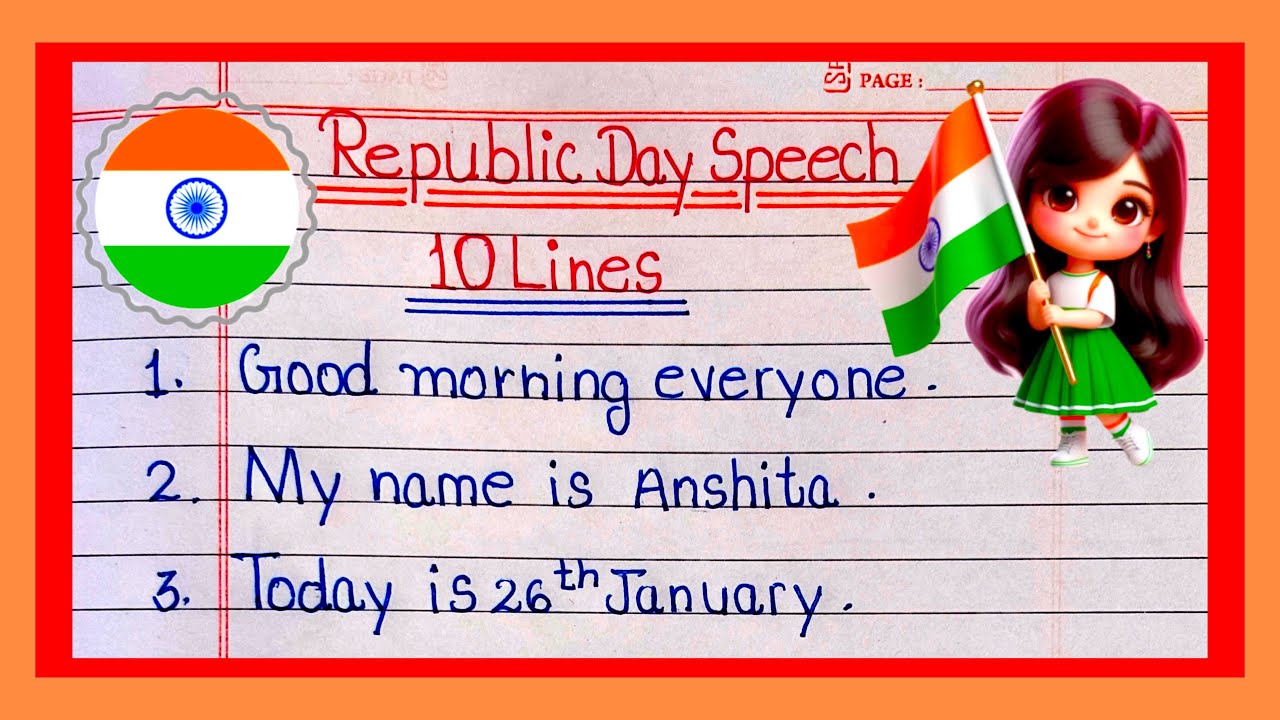 PAGE :
Republic Day Speech
10 Lines
1. Good morning everyone.
2. My name is Anshita.
3. Today is 26th January.